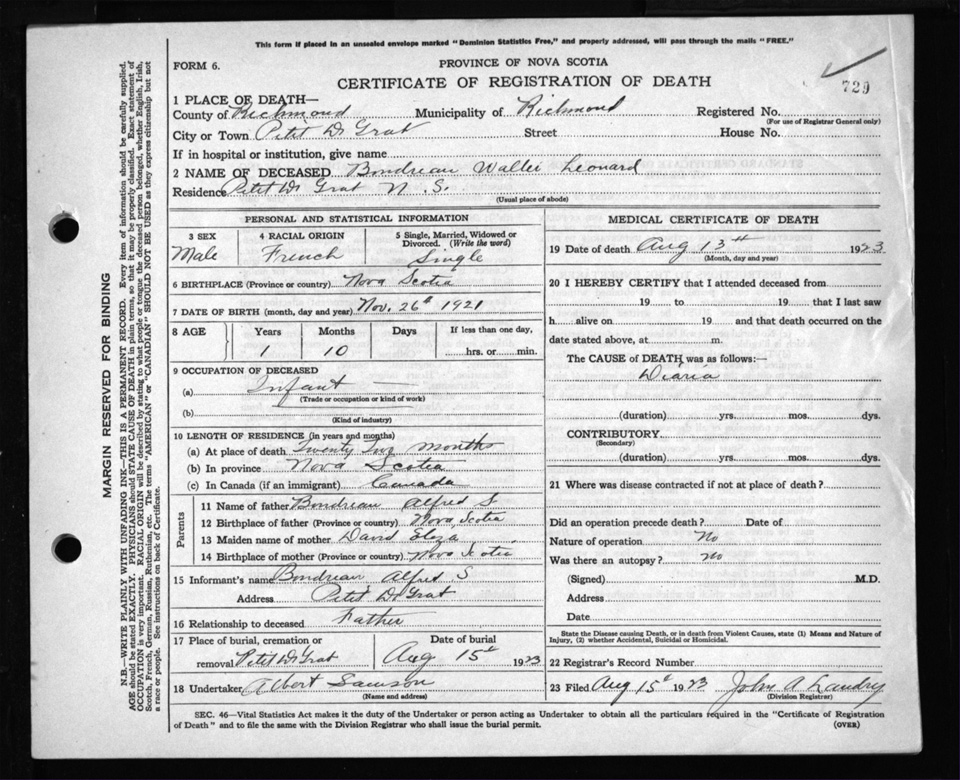 This form if placed in an unsealed envelope marked "Dominion Statistics Free," and properly addressed, will pass through the mails "FREE."
FORM 6.
PROVINCE OF NOVA SCOTIA
CERTIFICATE OF REGISTRATION OF DEATH
729
1 PLACE OF DEATH—
County of Richmond Municipality of Richmond Registered No.
(For use of Registrar General only)
City or Town Petit De Grat Street House No.
If in hospital or institution, give name
2 NAME OF DECEASED Boudreau Walter Leonard
Residence Petit De Grat N. S.
(Usual place of abode)
PERSONAL AND STATISTICAL INFORMATION
3 SEX 4 RACIAL ORIGIN 5 Single, Married, Widowed or Divorced. (Write the word)
Male French Single
6 BIRTHPLACE (Province or country) Nova Scotia
7 DATE OF BIRTH (month, day and year) Nov. 26th 1921
8 AGE Years Months Days If less than one day,
1 10 hrs. or min.
9 OCCUPATION OF DECEASED
(a) Infant
(Trade or occupation or kind of work)
(b)
(Kind of industry)
10 LENGTH OF RESIDENCE (in years and months)
(a) At place of death Twenty Two months
(b) In province Nova Scotia
(c) In Canada (if an immigrant) Canada
Parents
11 Name of father Boudreau Alfred S
12 Birthplace of father (Province or country) Nova Scotia
13 Maiden name of mother David
14 Birthplace of mother (Province or country) Nova Scotia
15 Informant's name Boudreau Alfred S
Address Petit De Grat
16 Relationship to deceased Father
17 Place of burial, cremation or removal Petit De Grat
Date of burial
Aug 15th 1923
18 Undertaker Albert Samson
(Name and address)
MEDICAL CERTIFICATE OF DEATH
19 Date of death Aug 13th 1923
(Month, day and year)
20 I HEREBY CERTIFY that I attended deceased from
19 to 19 that I last saw
h alive on 19 and that death occurred on the
date stated above, at m.
The CAUSE of DEATH was as follows:—
Diaria
(duration) yrs. mos. dys.
CONTRIBUTORY
(Secondary)
(duration) yrs. mos. dys.
21 Where was disease contracted if not at place of death?
Did an operation precede death? Date of
Nature of operation No
Was there an autopsy? no
(Signed) M.D.
Address
Date
State the Disease causing Death, or in death from Violent Causes, state (1) Means and Nature of
Injury, (2) whether Accidental, Suicidal or Homicidal.
22 Registrar's Record Number
23 Filed Aug 15th 1923 John A Landry
(Division Registrar)
SEC. 46—Vital Statistics Act makes it the duty of the Undertaker or person acting as Undertaker to obtain all the particulars required in the "Certificate of Registration
of Death" and to file the same with the Division Registrar who shall issue the burial permit.
(OVER)
MARGIN RESERVED FOR BINDING
N.B.—WRITE PLAINLY WITH UNFADING INK—THIS IS A PERMANENT RECORD. Every item of information should be carefully supplied.
AGE should be stated EXACTLY. PHYSICIANS should STATE CAUSE OF DEATH in plain terms, so that it may be properly classified. Exact statement of
OCCUPATION is very important. RACIAL ORIGIN will be described by stating to what people or tongue the deceased person belonged, whether English, Irish,
Scotch, French, German, Russian, Ruthenian, etc. The terms "AMERICAN" or "CANADIAN" SHOULD NOT BE USED as they express citizenship but not
a race or people. See instructions on back of Certificate.